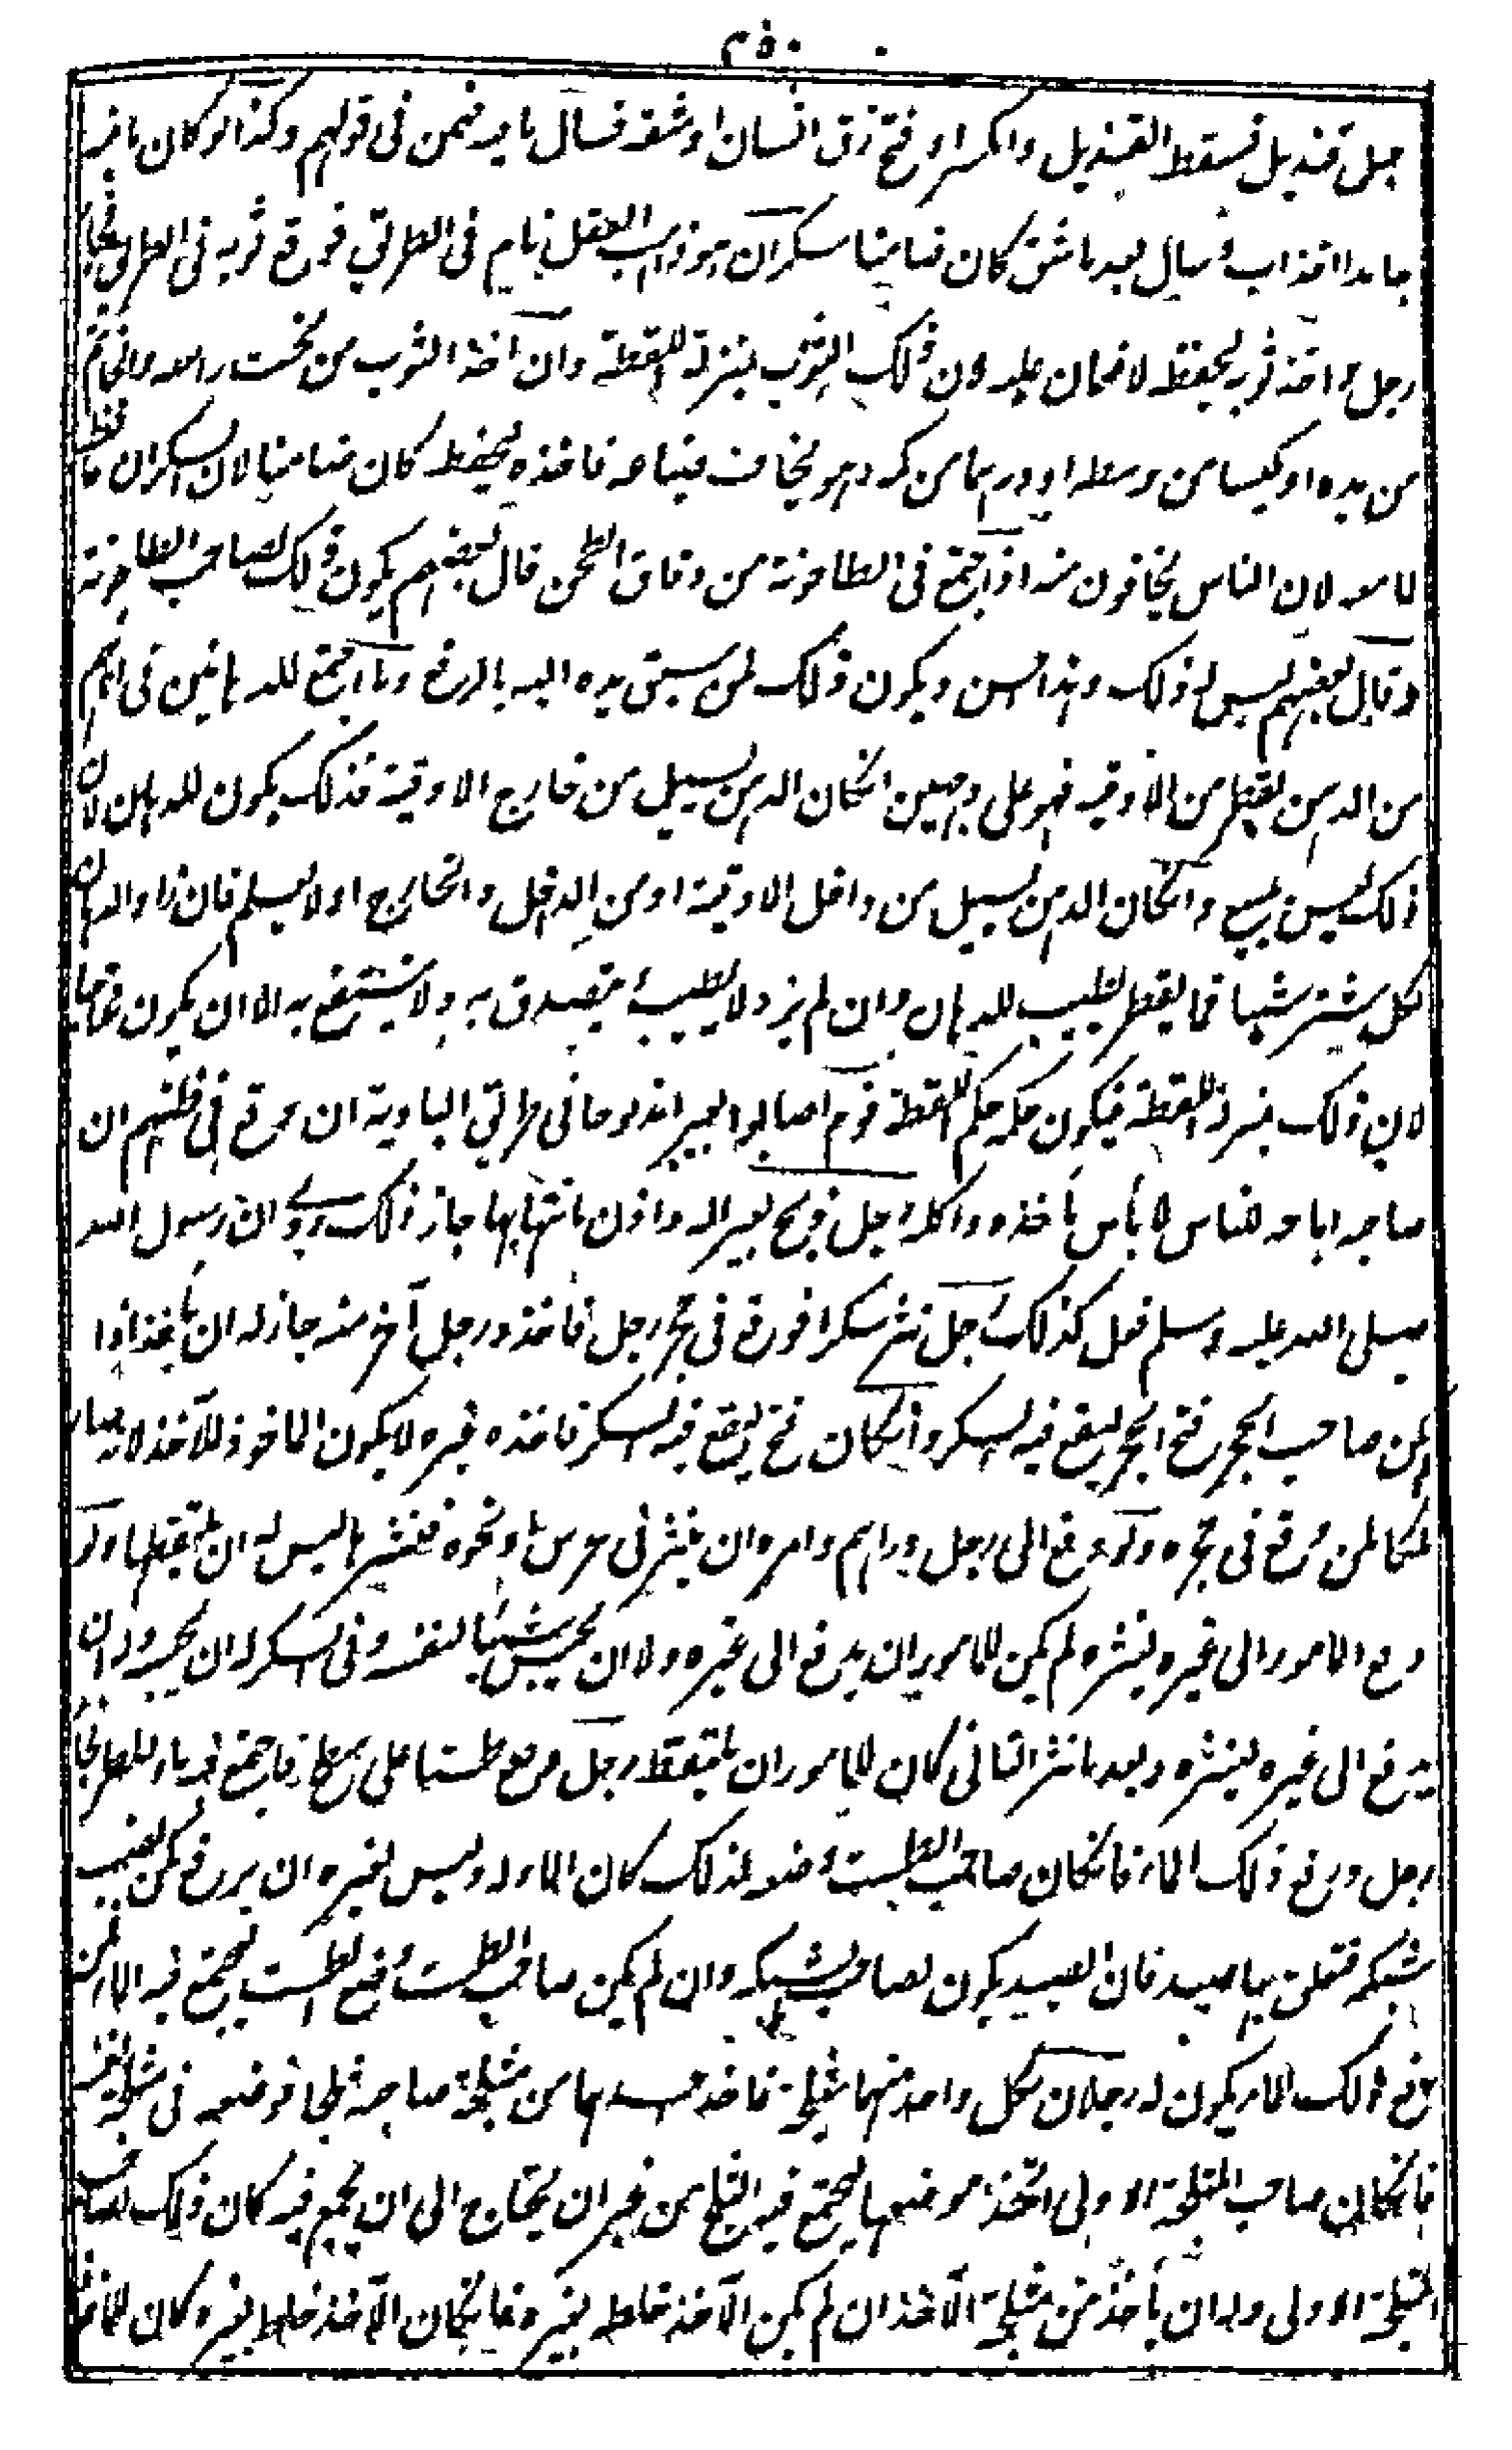 ٢٥٠
حبل قنديل فسقط القنديل وانكسر او فتح زق انسان او شقه فسال ما فيه ضمن فى قولهم وكذا لو كان ما فيه
جامدا فذاب وسال بعد ما شق كان ضامنا سكران هو ذاهب العقل نايم فى الطريق فوقع ثوبه فى الطريق فجاء
رجل واخذ ثوبه ليحفظه لا ضمان عليه لان ذلك الثوب بمنزلة اللقطة وان اخذ الثوب من تحت راسه والخاتم
من يده او كيسا من وسطه او درهما من كمه وهو يخاف ضياعه فاخذه ليحفظ كان ضامنا لان السكران حافظ
لما معه لان الناس يخافون منه اذا اجتمع فى الطاحونة من دقاق الطحن قال بعضهم يكون ذلك لصاحب الطاحونة
وقال بعضهم ليس له ذلك وهذا احسن ويكون ذلك لمن سبق يده اليه بالرفع وما اجتمع للدهانين فى انائهم
من الدهن يقطر من الاوقية فهو على وجهين انكان الدهن يسيل من خارج الاوقية فذلك يكون للدهان لان
ذلك ليس بمبيع وانكان الدهن يسيل من داخل الاوقية او من الداخل والخارج او لا يعلم فان زاد الدهان
لكل مشتر شيئا فما يقطر يطيب للدهان وان لم يزد لا يطيب يتصدق به ولا ينتفع به الا ان يكون محتاجا
لان ذلك بمنزلة اللقطة فيكون حكمه حكم اللقطة قوم اصابوا بعيرا مذبوحا فى طريق البادية ان وقع فى ظنهم ان
صاحبه اباحه للناس لا بأس بأخذه واكله رجل ذبح بعيرا له واذن بانتهابها جاز ذلك روى ان رسول الله
صلى الله عليه وسلم فعل كذلك رجل نثر سكرا فوقع فى حجر رجل فاخذه رجل آخر منه جاز له ان يأخذ اذا
لم يكن صاحب الحجر فتح الحجر ليقع فيه السكر وانكان فتح ليقع فيه السكر فاخذه غيره لا يكون الماخوذ للآخذ لانه صار
ملكا لمن وقع فى حجره ولو دفع الى رجل دراهم وامره ان ينثر فى عرس او نحوه فنثرها ليس له ان يلتقطها ولو
دفع المامور الى غيره لينثره لم يكن للمامور ان يدفع الى غيره ولا ان يحبس شيئا لنفسه وفى السكر له ان يحبس وله ان
يدفع الى غيره لينثره وبعد ما نثر الثانى كان للمامور ان يلتقط رجل وضع طستا على سطح فاجتمع فيه ماء المطر فجاء
رجل ورفع ذلك الماء فانكان صاحب الطست وضعه لذلك كان الماء له وليس لغيره ان يرفع كمن نصب
شبكة فتعلق بها صيد فان الصيد يكون لصاحب الشبكة وان لم يكن صاحب الطست وضع الطست ليجتمع فيه الماء فمن
رفع ذلك الماء يكون له رجلان لكل واحد منهما مثلجة فاخذ احدهما من مثلجة صاحبه ثلجا فوضعه فى مثلجة نفسه
فانكان صاحب المثلجة الاولى اتخذ موضعا ليجتمع فيه الثلج من غير ان يحتاج الى ان يجمع فيه كان ذلك لصاحب
المثلجة الاولى وله ان يأخذ من مثلجة الآخذ ان لم يكن الآخذ خلطه بغيره فانكان الآخذ خلطه بغيره كان للماخوذ